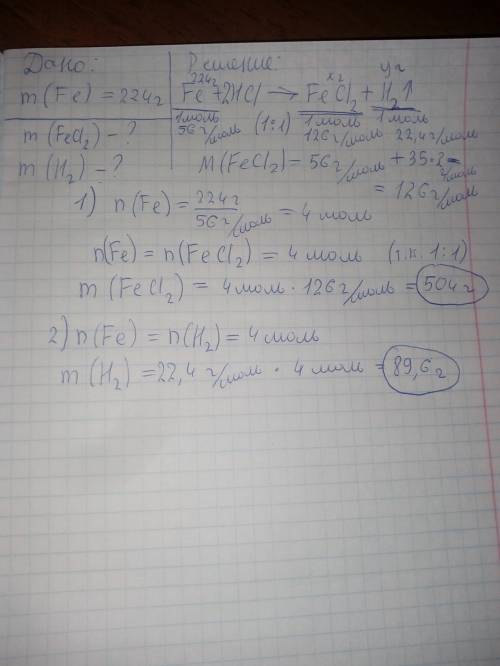 Дано:
m(Fe) = 224г
m(FeCl₂) - ?
m(H₂) - ?
Решение:
224г x г y г
Fe + 2HCl → FeCl₂ + H₂↑
1 моль 1 моль 1 моль
56 г/моль (1:1) 126 г/моль 22,4 г/моль
M(FeCl₂) = 56 г/моль + 35·2 =
= 126 г/моль
1) n(Fe) = 224г / 56 г/моль = 4 моль
n(Fe) = n(FeCl₂) = 4 моль (т.к. 1:1)
m(FeCl₂) = 4 моль · 126 г/моль = 504 г
2) n(Fe) = n(H₂) = 4 моль
m(H₂) = 22,4 г/моль · 4 моль = 89,6 г